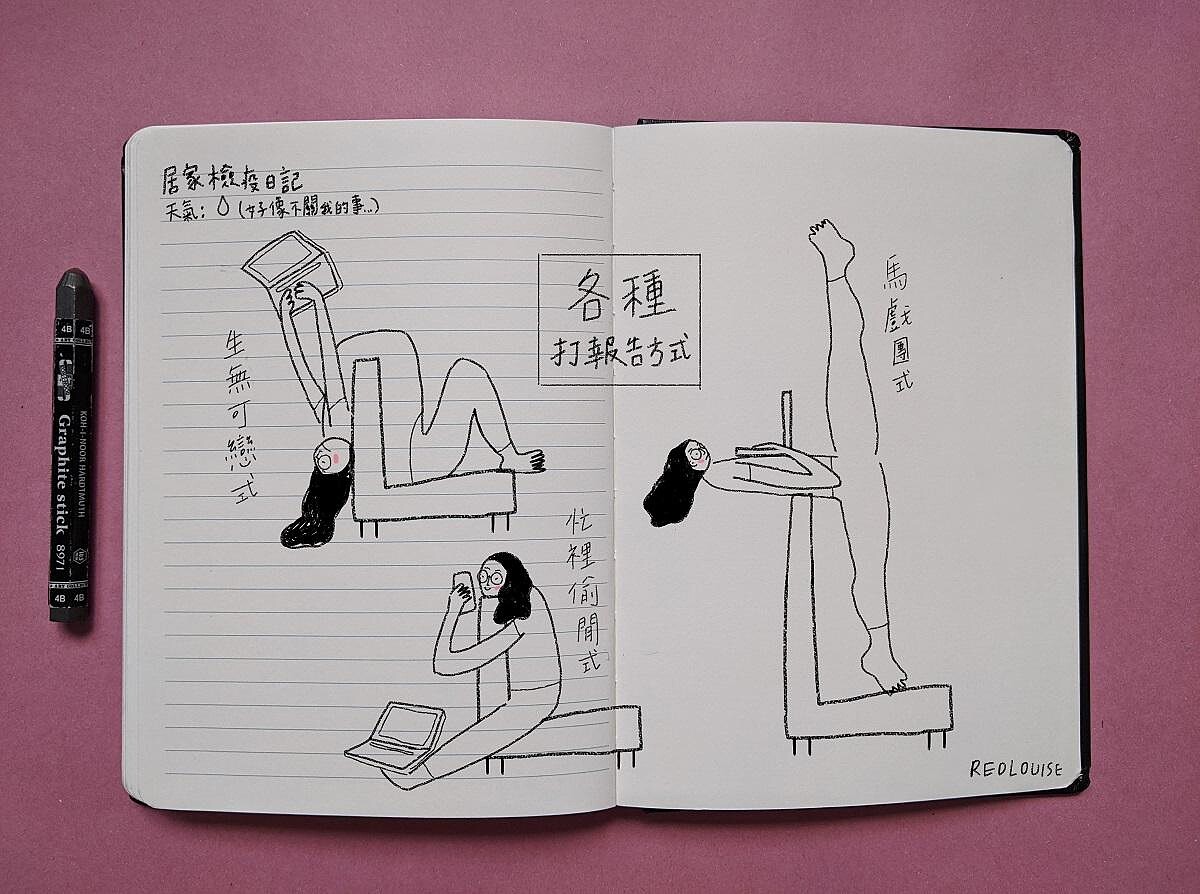 居家檢疫日記
天氣：(好像不關我的事...)
各種
打報告方式
生無可戀式
忙裡偷閒式
馬戲團式
REDLOUISE
4B 4B
KOH-I-NOOR HARDTMUTH
Graphite stick 8971
4B 4B